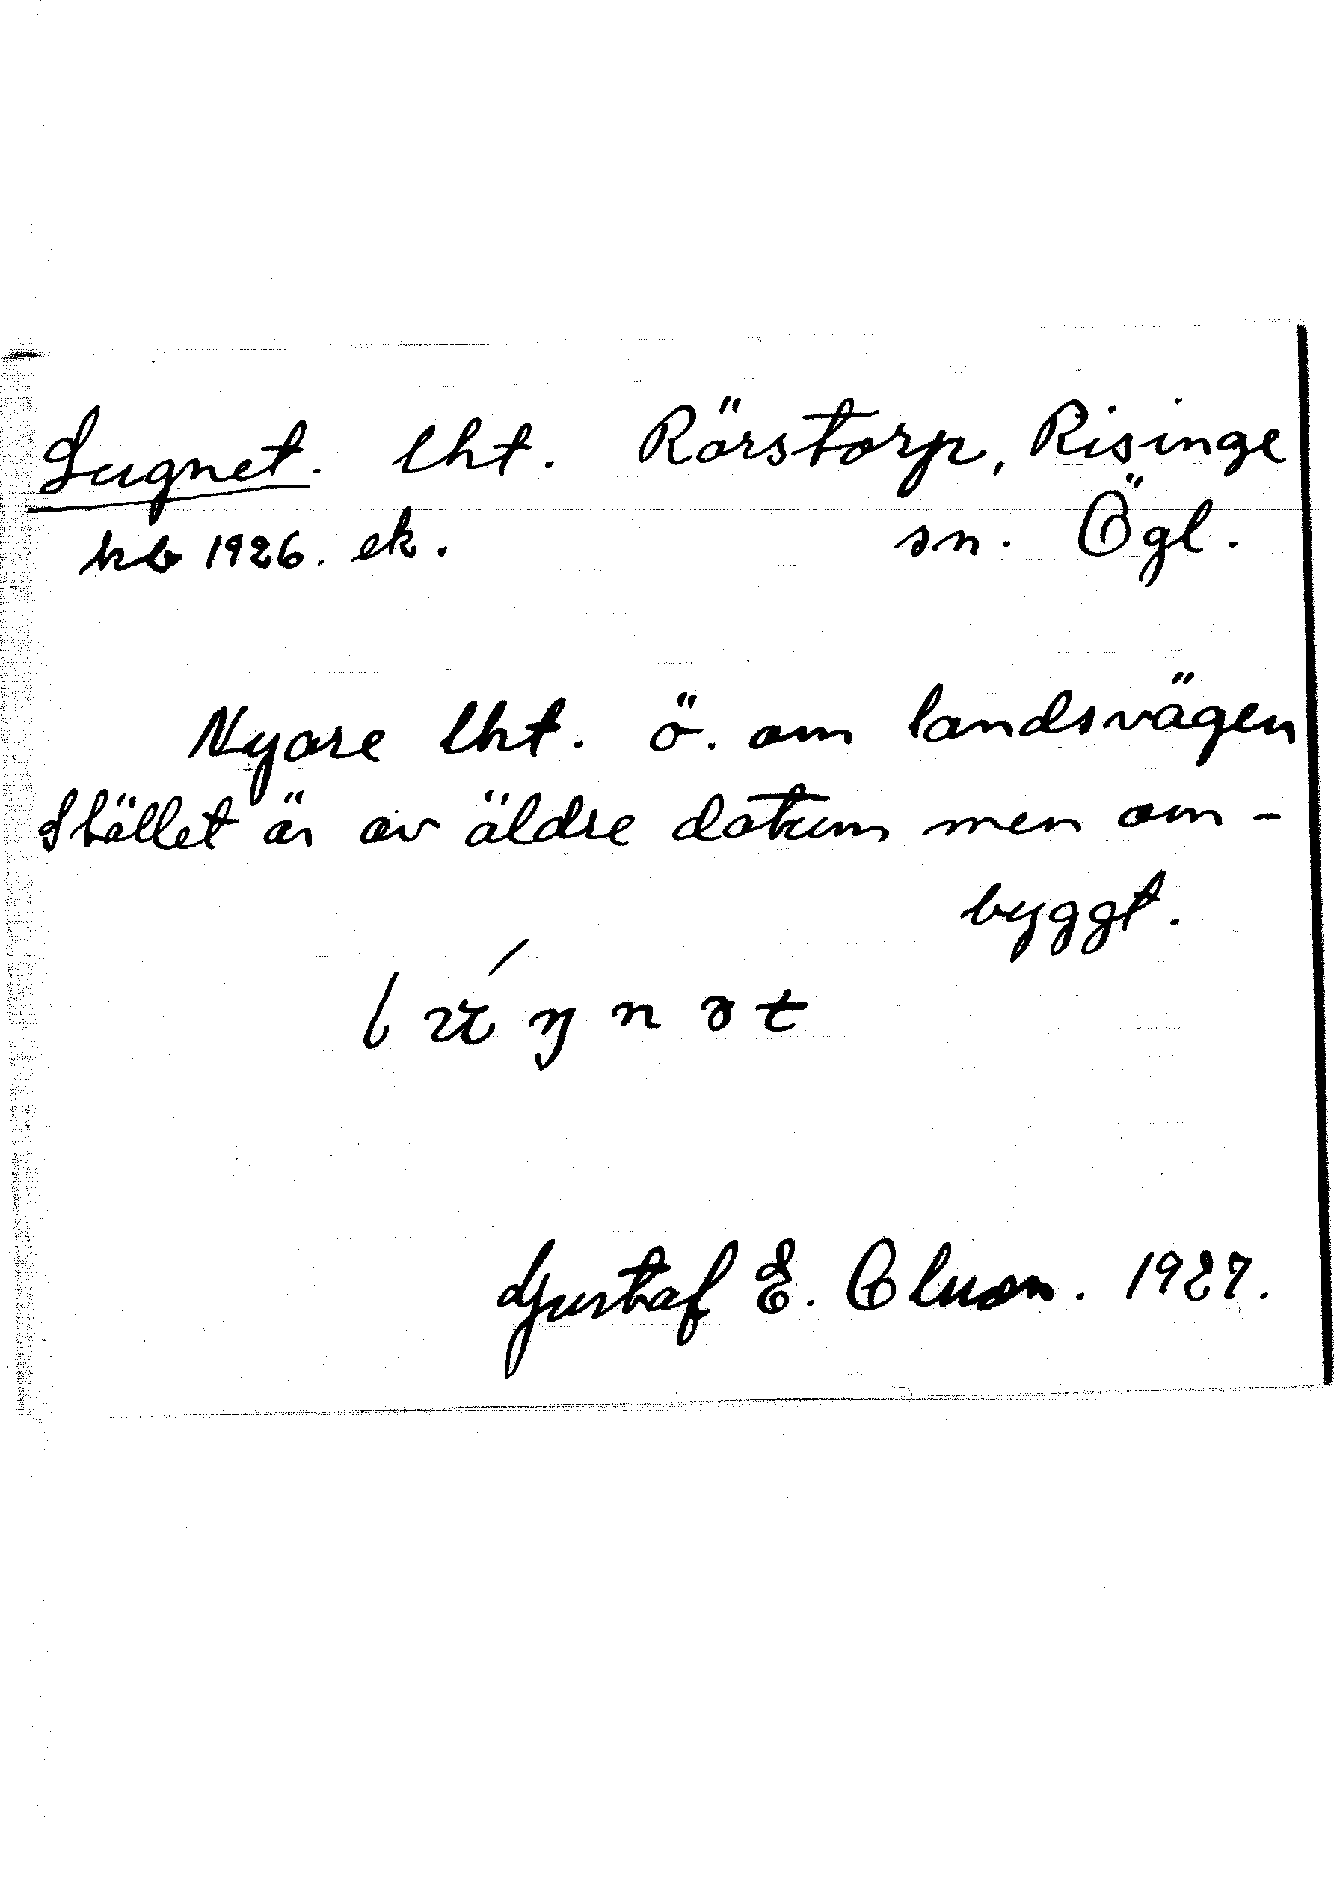 Lugnet. lht. Rörstorp, Risinge
kb 1926. ek. sn. Ögl.
Nyare lht. ö. om landsvägen
Stället är av äldre datum men om-
byggt.
Gustaf E. Cluson. 1927.